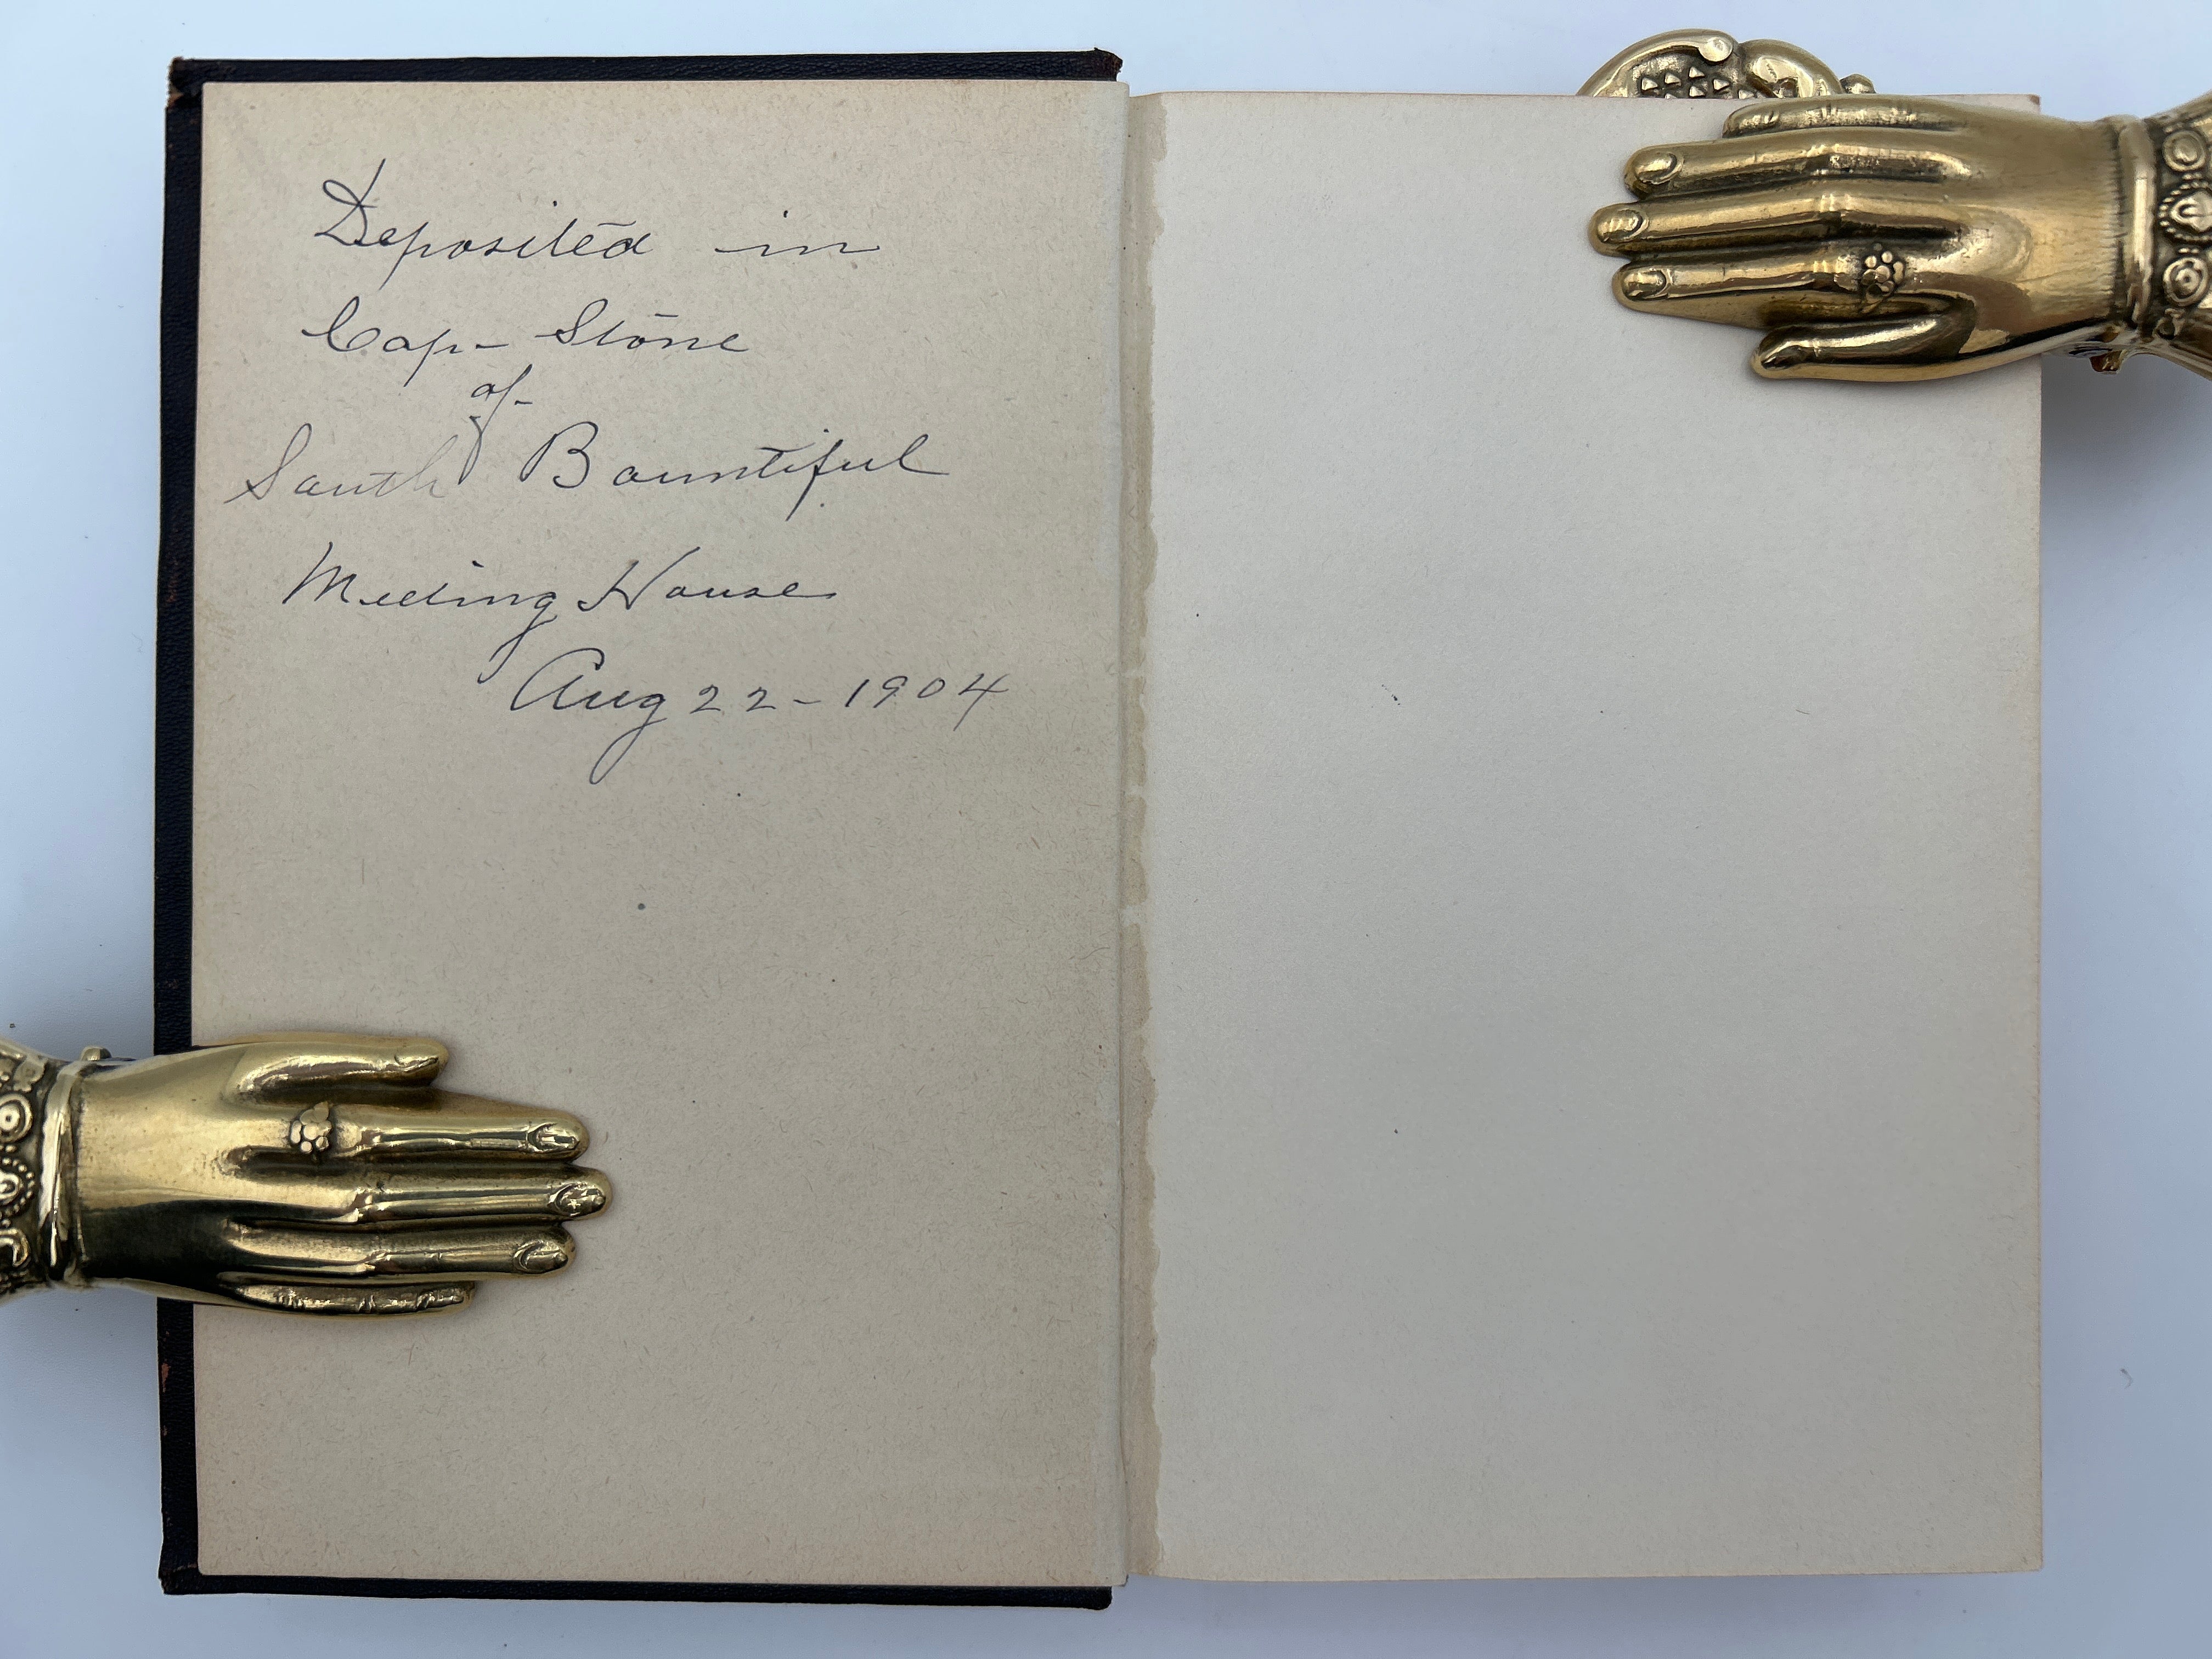 Deposited in
Cap-Stone
of
South Bountiful
Meeting House
Aug 22-1904